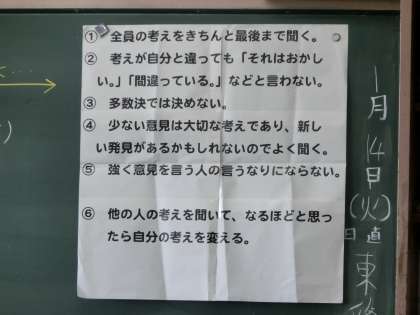 ① 全員の考えをきちんと最後まで聞く。
② 考えが自分と違っても「それはおかし
い。」「間違っている。」などと言わない。
③ 多数決では決めない。
④ 少ない意見は大切な考えであり、新し
い発見があるかもしれないのでよく聞く。
⑤ 強く意見を言う人の言うなりにならない。
⑥ 他の人の考えを聞いて、なるほどと思っ
たら自分の考えを変える。
1月14日(火)
日直
東